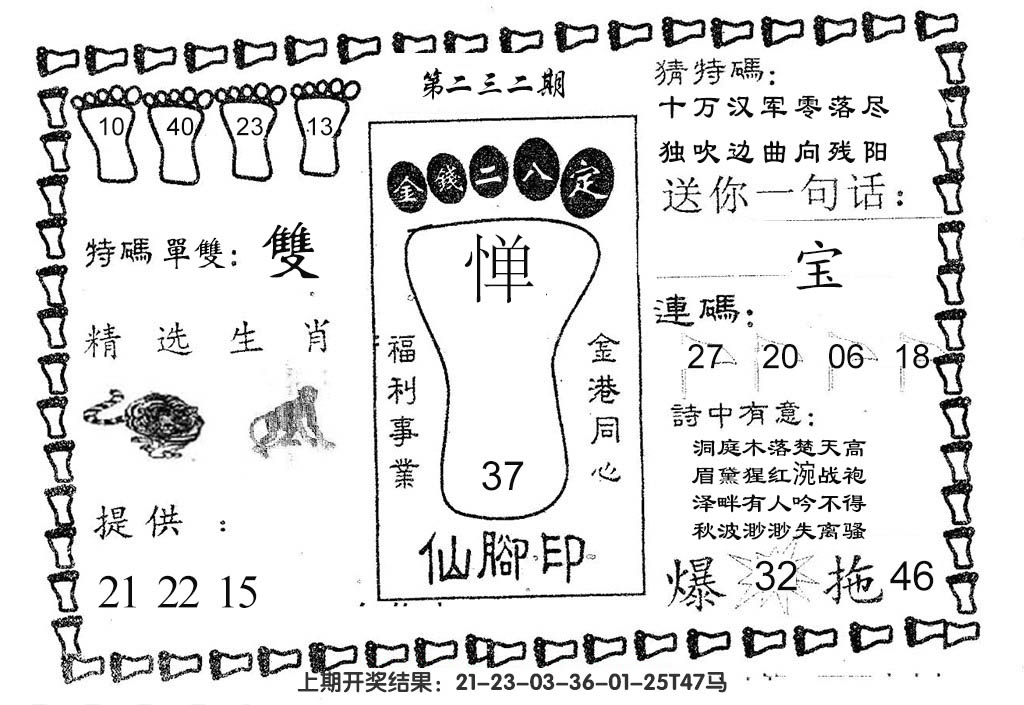 第二三二期
10 40 23 13
特碼單雙：雙
精选生肖
提供：
21 22 15
金錢二八定
惮
福利事業
金港同心
37
仙腳印
猜特碼：
十万汉军零落尽
独吹边曲向残阳
送你一句话：
宝
連碼：
27 20 06 18
詩中有意：
洞庭木落楚天高
眉黛猩红涴战袍
泽畔有人吟不得
秋波渺渺失离骚
爆 32 拖 46
上期开奖结果：21-23-03-36-01-25T47马